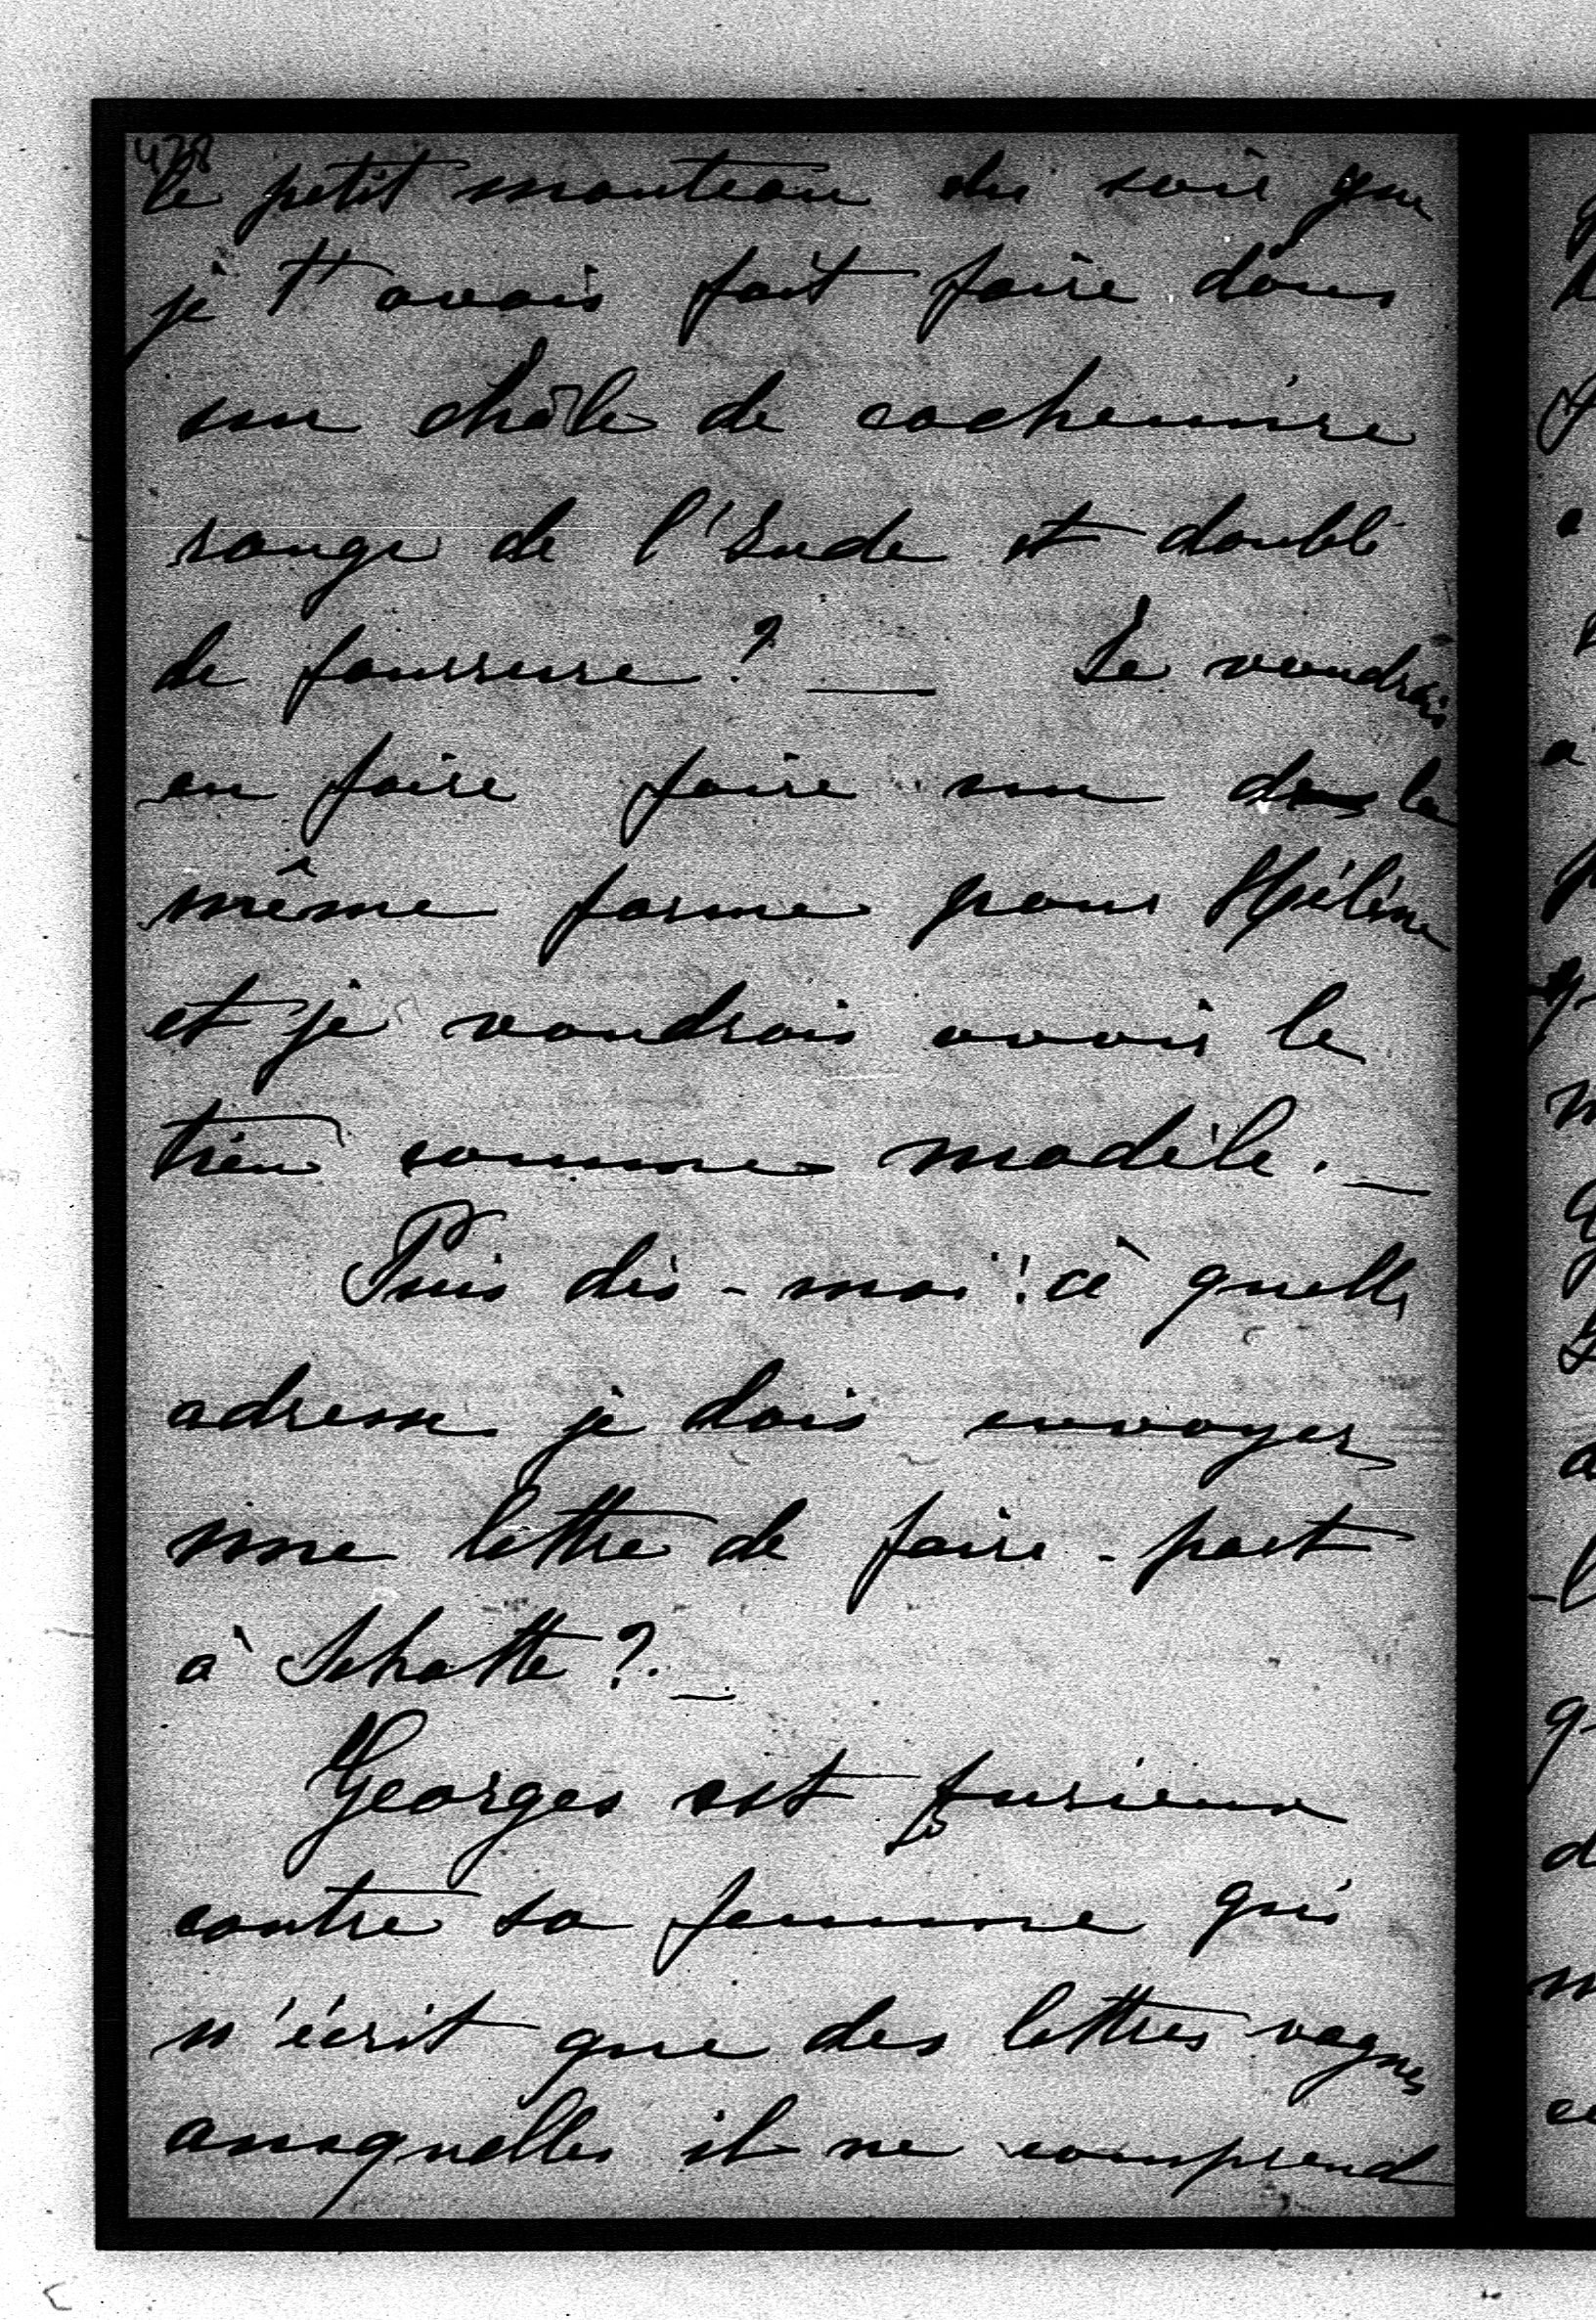 478
le petit manteau du soir que
je t'avais fait faire dans
un châle de cachemire
rouge de l'Inde et doublé
de fourrure ? — Je voudrais
en faire faire un dans la
même forme pour Hélène
et je voudrais avoir le
tien comme modèle. —
Puis dis-moi ! à quelle
adresse je dois envoyer
une lettre de faire-part
à Schatte ? —
Georges est furieux
contre sa femme qui
n'écrit que des lettres vagues
auxquelles il ne comprend